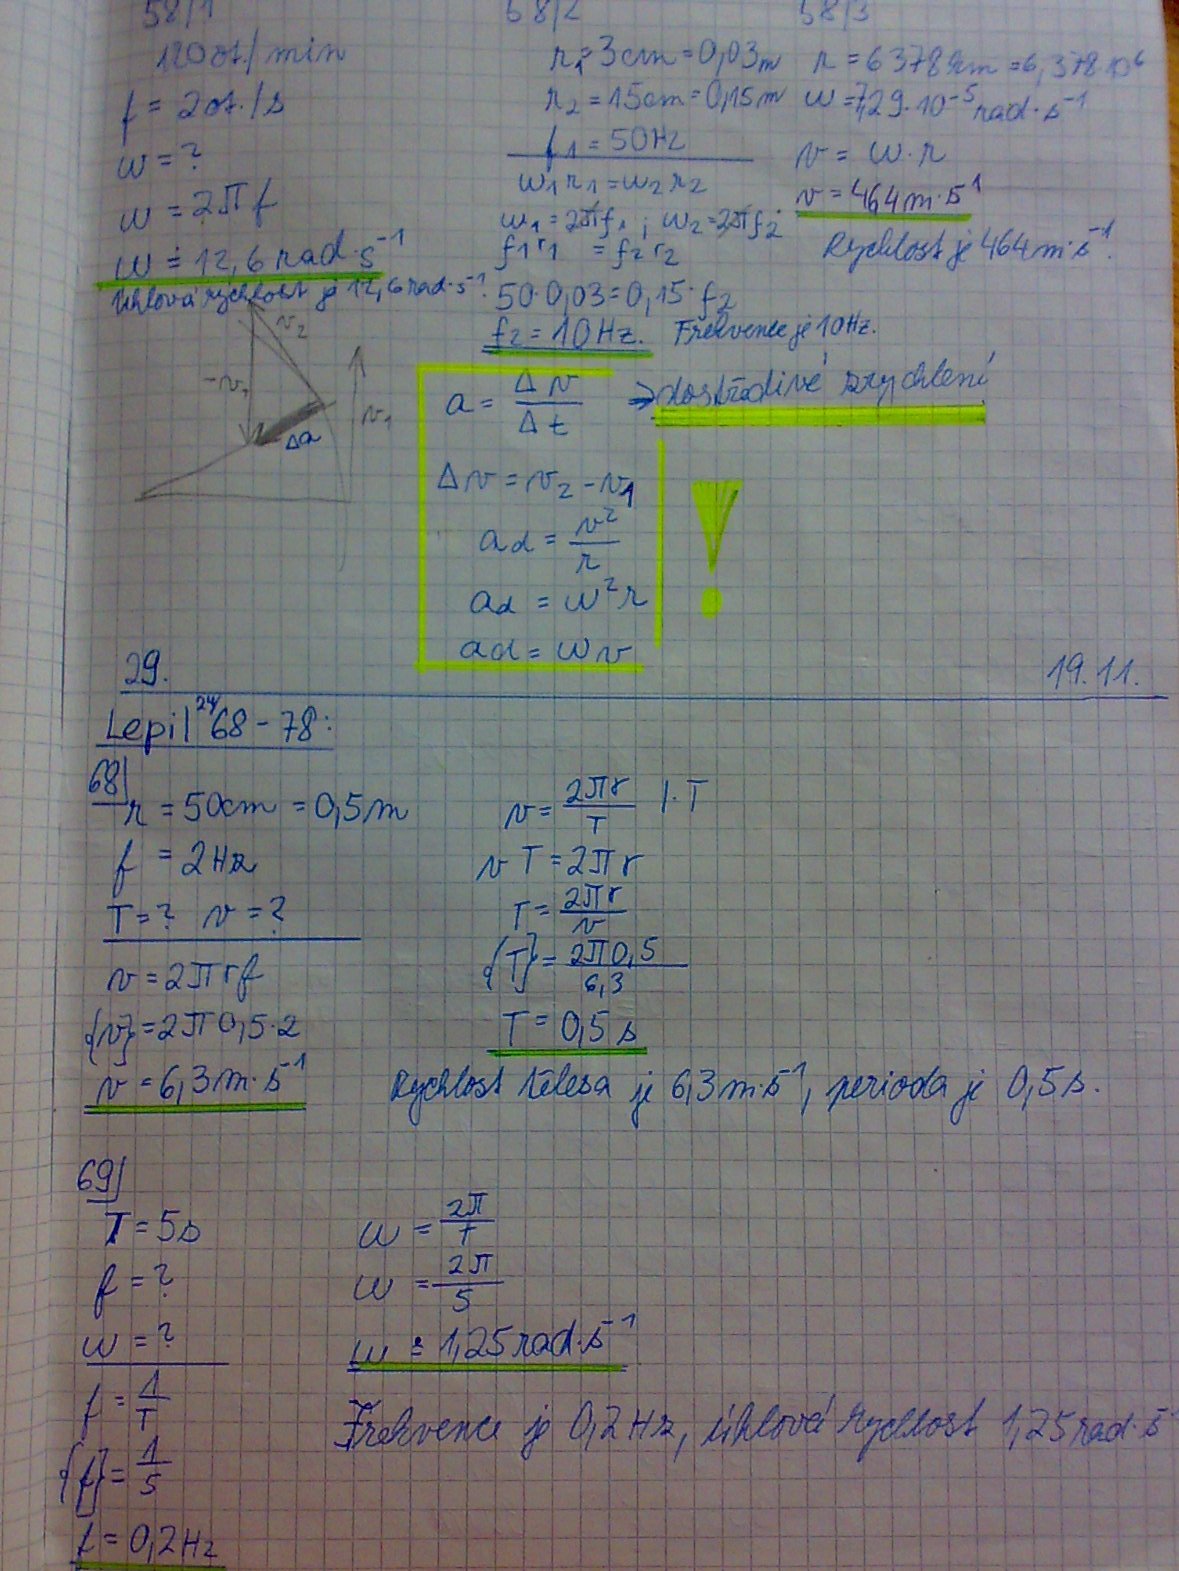 58/1
120ot/min
f = 2ot./s
ω = ?
ω = 2πf
ω ≐ 12,6 rad·s⁻¹
Úhlová rychlost je 12,6 rad·s⁻¹.
58/2
r₁ = 3cm = 0,03m
r₂ = 15cm = 0,15m
f₁ = 50Hz
ω₁r₁ = ω₂r₂
ω₁ = 2πf₁ ; ω₂ = 2πf₂
f₁r₁ = f₂r₂
50·0,03 = 0,15·f₂
f₂ = 10Hz. Frekvence je 10Hz.
58/3
r = 6378km = 6,378·10⁶
ω = 7,29·10⁻⁵ rad·s⁻¹
v = ω·r
v = 464m·s⁻¹
Rychlost je 464m·s⁻¹.
v₂
-v₁
v₁
Δa
a = Δv/Δt → dostředivé zrychlení
Δv = v₂ - v₁
ad = v²/r
ad = ω²r
ad = ωv
!
29. 19.11.
Lepil 24/68 - 78:
68/
r = 50cm = 0,5m
f = 2Hz
T = ? v = ?
v = 2πrf
{v} = 2π0,5·2
v = 6,3m·s⁻¹
v = 2πr/T |·T
vT = 2πr
T = 2πr/v
{T} = 2π0,5/6,3
T = 0,5s
Rychlost tělesa je 6,3m·s⁻¹, perioda je 0,5s.
69/
T = 5s
f = ?
ω = ?
f = 1/T
{f} = 1/5
f = 0,2Hz
ω = 2π/T
ω = 2π/5
ω ≐ 1,25rad·s⁻¹
Frekvence je 0,2Hz, úhlová rychlost 1,25rad·s⁻